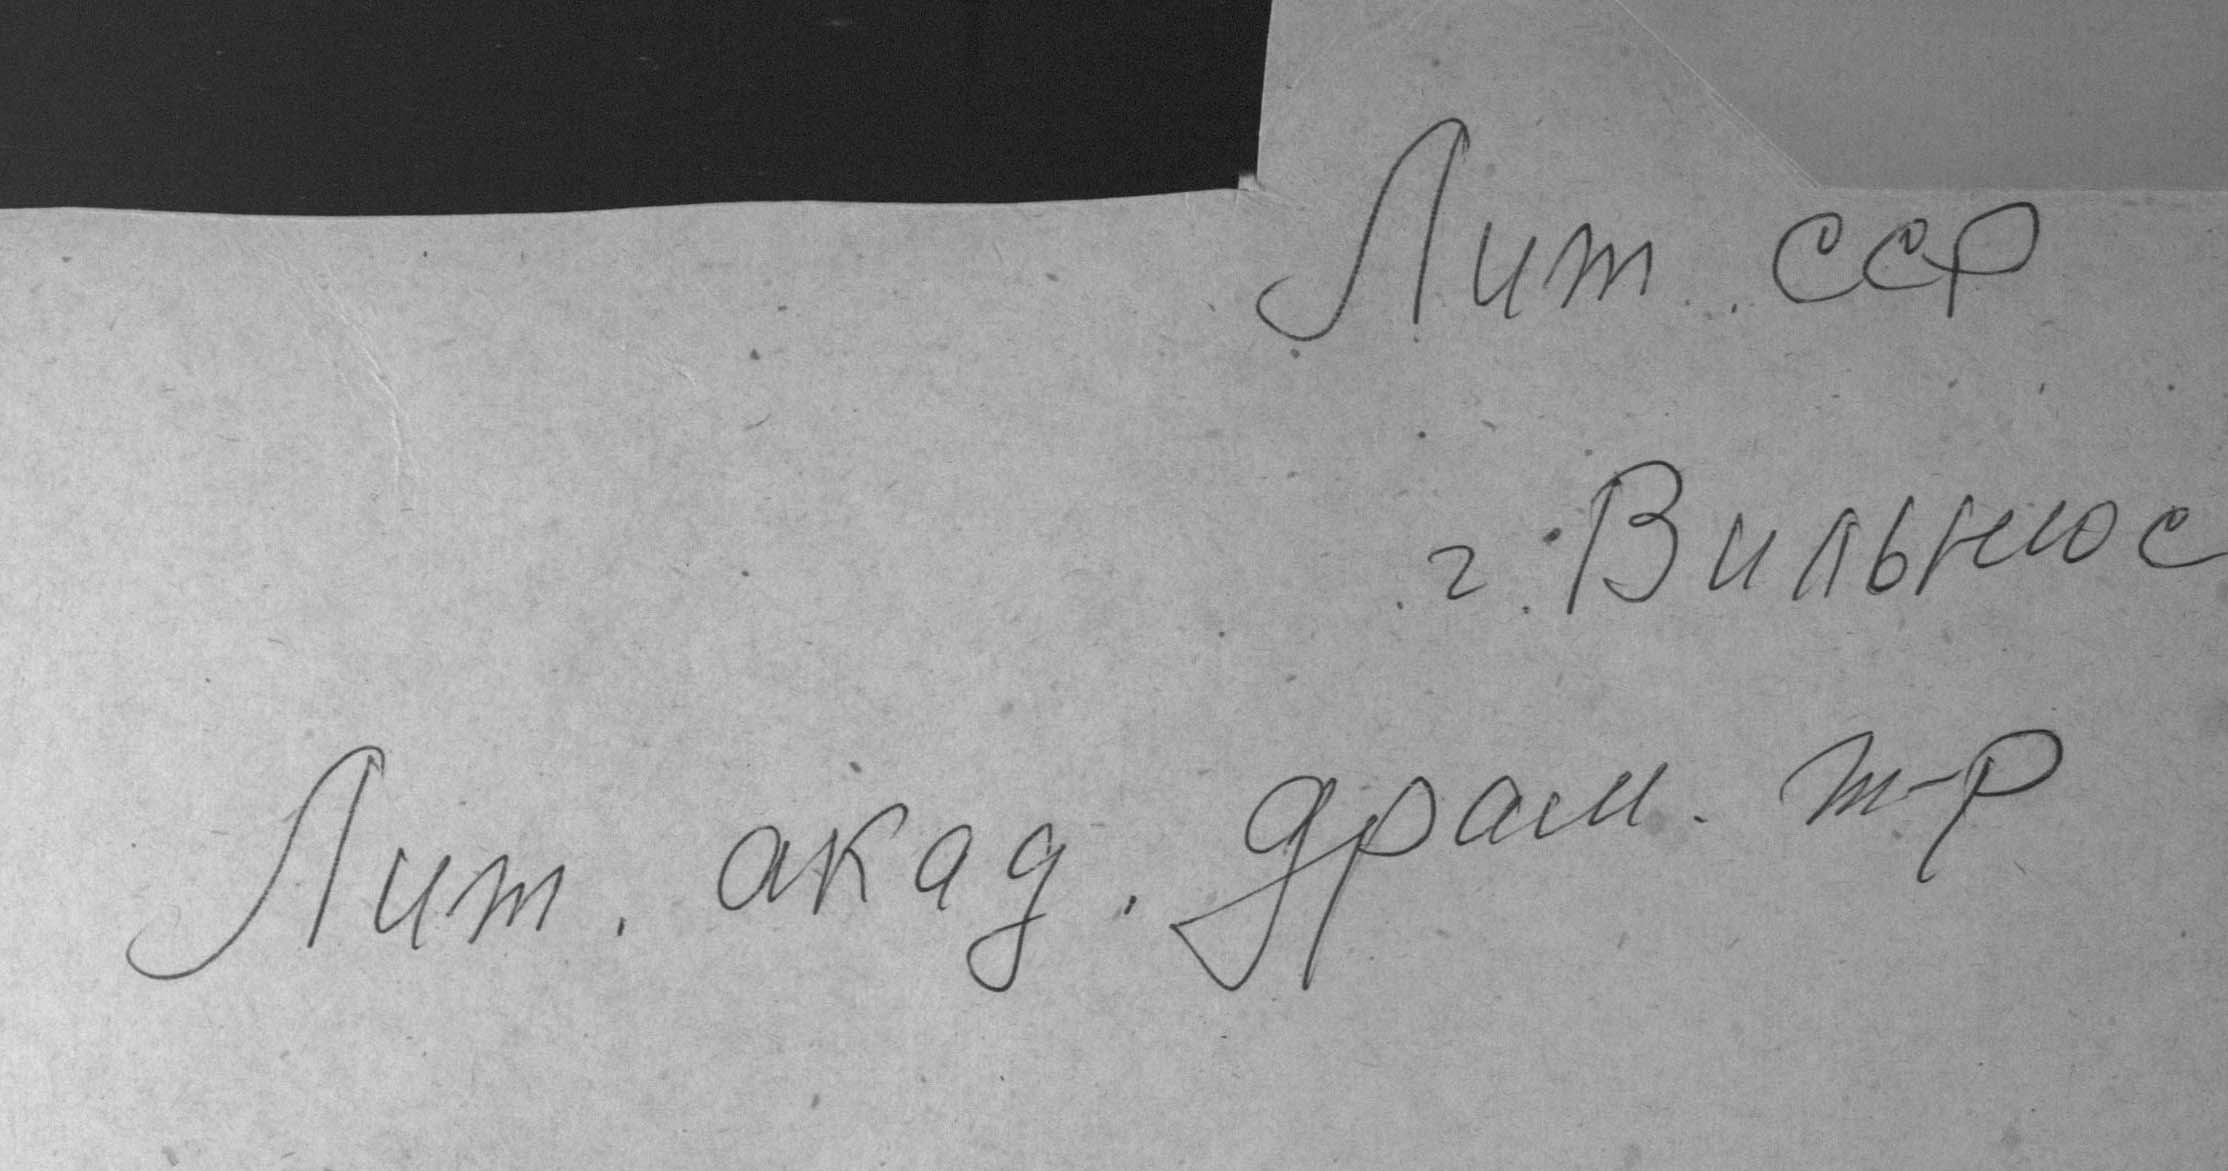 Лит. ССР
г. Вильнюс
Лит. акад. драм. т-р